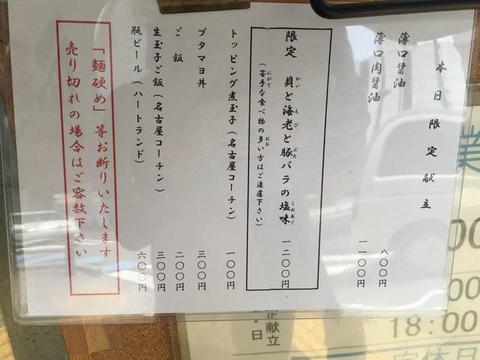 本日限定献立
薄口醤油 八〇〇円
薄口肉醤油 一一〇〇円
限定 貝と海老と豚バラの塩味 一二〇〇円
(苦手な食べ物の多い方はご遠慮下さい)
トッピング煮玉子(名古屋コーチン) 一〇〇円
ブタマヨ丼 三〇〇円
ご飯 二〇〇円
生玉子ご飯(名古屋コーチン) 三〇〇円
瓶ビール(ハートランド) 六〇〇円
「麺硬め」等お断りいたします
売り切れの場合はご容赦下さい
業
18:00
献立
定休日
日